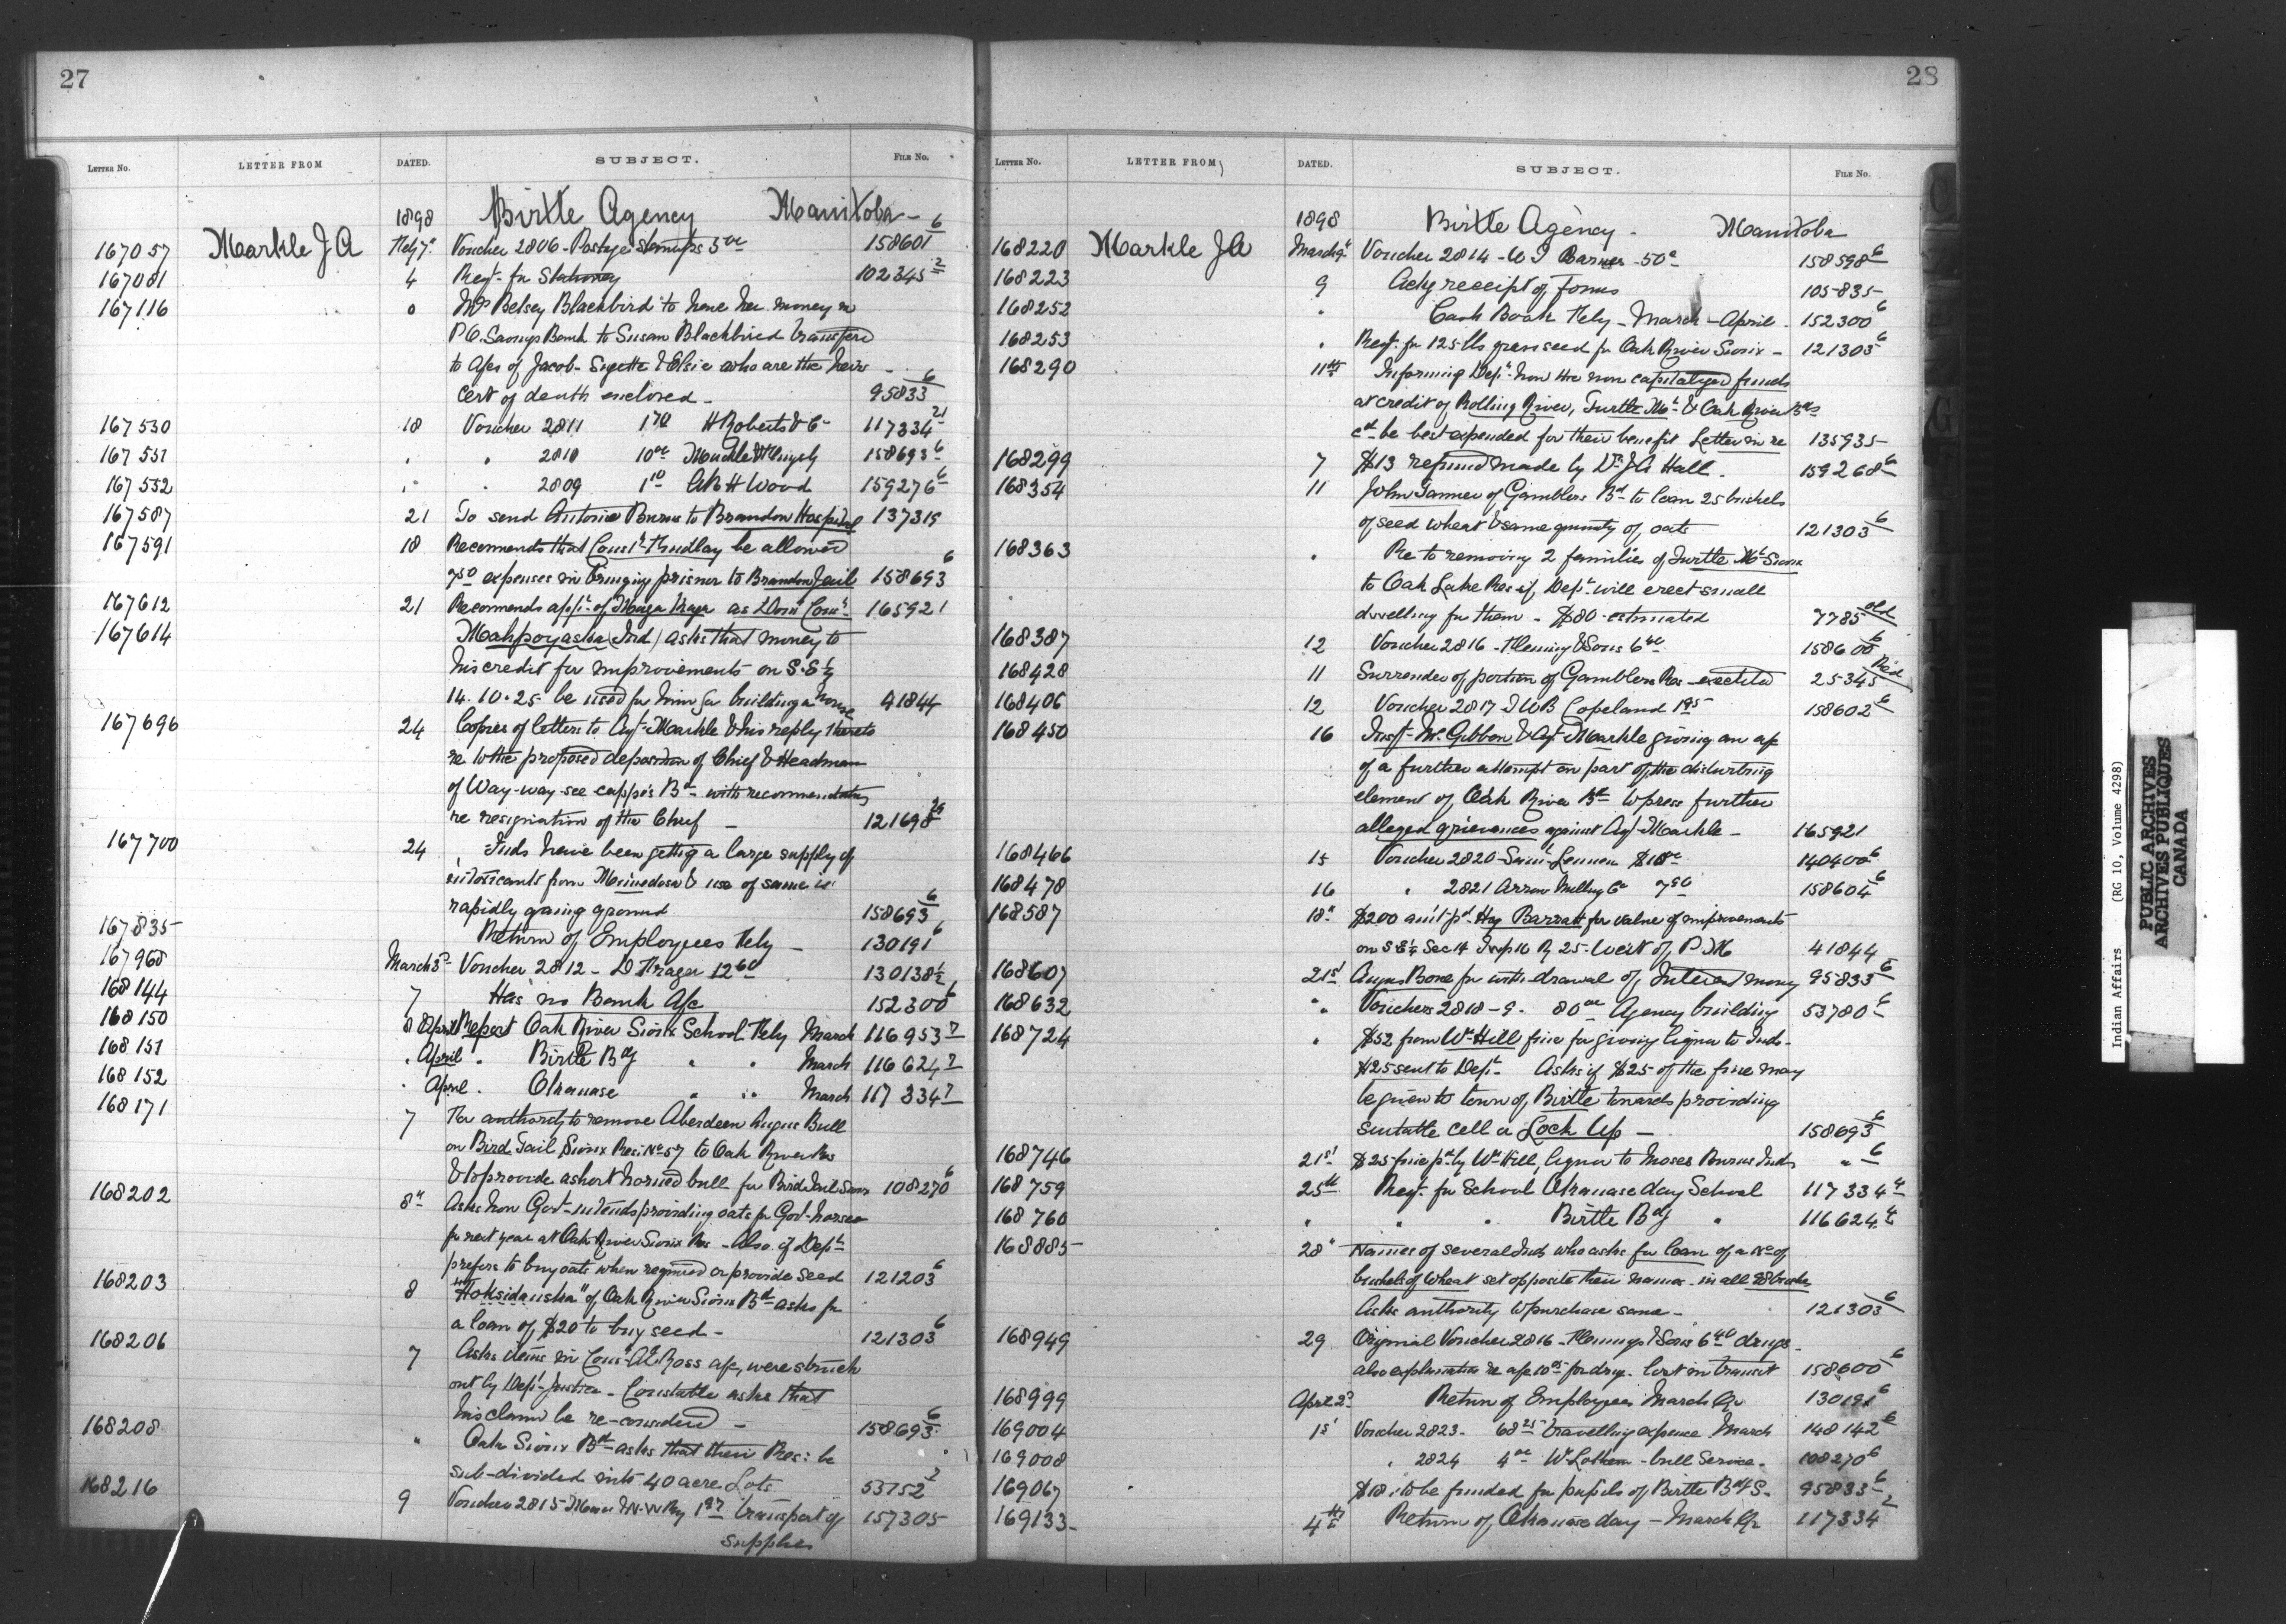 27
LETTER No. LETTER FROM DATED. SUBJECT. FILE No.
1898 Birtle Agency Manitoba
167057 Markle J A Feby 7" Voucher 2806 - Postage stamps 5 00 158601 6
167081 4 Reqt. for Stationery 102345 2
167116 Mrs Betsey Blackbird to have her money in
P.O. Savings Bank to Susan Blackbird transferd
to a/cs of Jacob - & Elsie who are the heirs -
Cert of death enclosed - 95833 6
167530 18 Voucher 2811 1 70 H Roberts & Co 117334 21
167531 " " 2810 10 00 158693 6
167532 " " 2809 1 10 A R H Wood 159276 6
167587 21 To send Antoine Burns to Brandon Hospital 137315
167591 18 Recommends that Const. Findlay be allowed
7 50 expenses in bringing prisoner to Brandon Jail 158693 6
167612 21 Recommends appt. of as Dom Const. 165921
167614 Mahpoyaska (Ind) asks that money to
his credit for improvements on S.E ¼
14.10.25 be used for him for building a house 41844
167696 24 Copies of letters to Agt. Markle & his reply thereto
re to the proposed deposition of Chief & Headman
of Way-way-see-cappo's Bd. with recommendation
re resignation of the Chief - 121698 29
167700 24 Inds have been getting a large supply of
intoxicants from Minnedosa & use of same is
rapidly gaining ground 158693 6
167835 Return of Employees Feby - 130191 6
167968 March 3d Voucher 2812 - D 12 60 130138½
168144 7 Has no Bank A/c 152300 6
168150 8 April Report Oak River Sioux School Feby March 116953 7
168151 " April " Birtle Bdg " " March 116624 7
168152 " April " Okanase " " March 117334 7
168171 7 For authority to remove Aberdeen Angus Bull
on Bird Tail Sioux Res: No 57 to Oak River Res
& to provide a short horned bull for Bird Tail Sioux 108270 6
168202 8" Asks how Govt. intends providing oats for Govt. horses
for next year at Oak River Sioux Res - Also if Dept.
prefers to buy oats when required or provide seed 121203 6
168203 8 "Hoksidauska" of Oak River Sioux Bd. asks for
a loan of $20 to buy seed - 121303 6
168206 7 Asks items in Const. A. Ross a/c, were struck
out by Dept. Justice - Constable asks that
his claim be re-considered - 158693 6
168208 " Oak Sioux Bd. asks that their Res: be
sub-divided into 40 acre Lots 53752 2
168216 9 Voucher 2815 - Man & N.W Ry 1 97 transport of 157305
supplies
28
LETTER No. LETTER FROM DATED. SUBJECT. FILE No.
1898 Birtle Agency - Manitoba
168220 Markle J A March 9" Voucher 2814 - W J Barnes - 50c 158598 6
168223 9 Ackg receipt of forms 105835
168252 " Cash Book Feby - March - April - 152300 6
168253 " Reqt. for 125 lbs grass seed for Oak River Sioux - 121303 6
168290 11th Informing Dept. how the non capitalized funds
at credit of Rolling River, Turtle Mt. & Oak River Bds
cd. be best expended for their benefit Letter in re 135935
168299 7 $13 refund made by Dr. J A Hall. 159268 6
168354 11 John Tanner of Gamblers Bd. to loan 25 bushels
of seed wheat & same quantity of oats 121303 6
168363 " Re to removing 2 families of Turtle Mt. Sioux
to Oak Lake Res if Dept. will erect small
dwelling for them - $80 - estimated 7785 old
168387 12 Voucher 2816 - Fleming & Sons 6 40 158600 6
168428 11 Surrender of portion of Gamblers Res - executed 25345
168406 12 Voucher 2817 - J W B Copeland 1 95 158602 6
168450 16 Insp. McGibbon & Agt. Markle giving an a/c
of a further attempt on part of the disturbing
element of Oak River Bd. to press further
alleged grievances against Agt. Markle - 165921
168466 15 Voucher 2820 - Saml Lennon $18 00 140400 6
168478 16 " 2821 Arrow Milling Co 7 50 158604 6
168587 18" $200 amt pd. Hay Barratt for value of improvements
on S.E ¼ Sec 14 Twp 10 R 25 - West of P.M 41844
168607 21st Angus Bone for withdrawal of Interest money 95833 6
168632 " Vouchers 2818 - 9 - 80 00 Agency building 53780 6
168724 " $52 from Wm Hill fine for giving liquor to Inds -
$25 sent to Dept. Asks if $25 of the fine may
be given to town of Birtle towards providing
suitable cell or Lock Up - 158693 6
168746 21st $25 fine pd by Wm Hill, liquor to Moses Burns Inds " 6
168759 25th Reqt. for School Okanase day School 117334 4
168760 " " " Birtle Bdg " 116624 4
168885 28" Names of several Inds who asks for loan of a No of
bushels of wheat set opposite their names - in all 98 bushels
Asks authority to purchase same - 121303 6
168949 29 Original Voucher 2816 - Flemings & Sons 6 40 drugs -
also explanation re a/c 10 05 for drugs - lost in transit 158600 6
168999 April 2d Return of Employees March Qr 130191 6
169004 1st Voucher 2823 - 68 25 travelling expense March 148142 6
169008 " 2824 4 00 Wm - bull Service - 108270 6
169067 $18 : to be funded for pupils of Birtle Bdg S - 95833 6
169133 - 4th Return of Okanase day - March Qr 117334 2
Indian Affairs (RG 10, Volume 4298)
PUBLIC ARCHIVES
ARCHIVES PUBLIQUES
CANADA